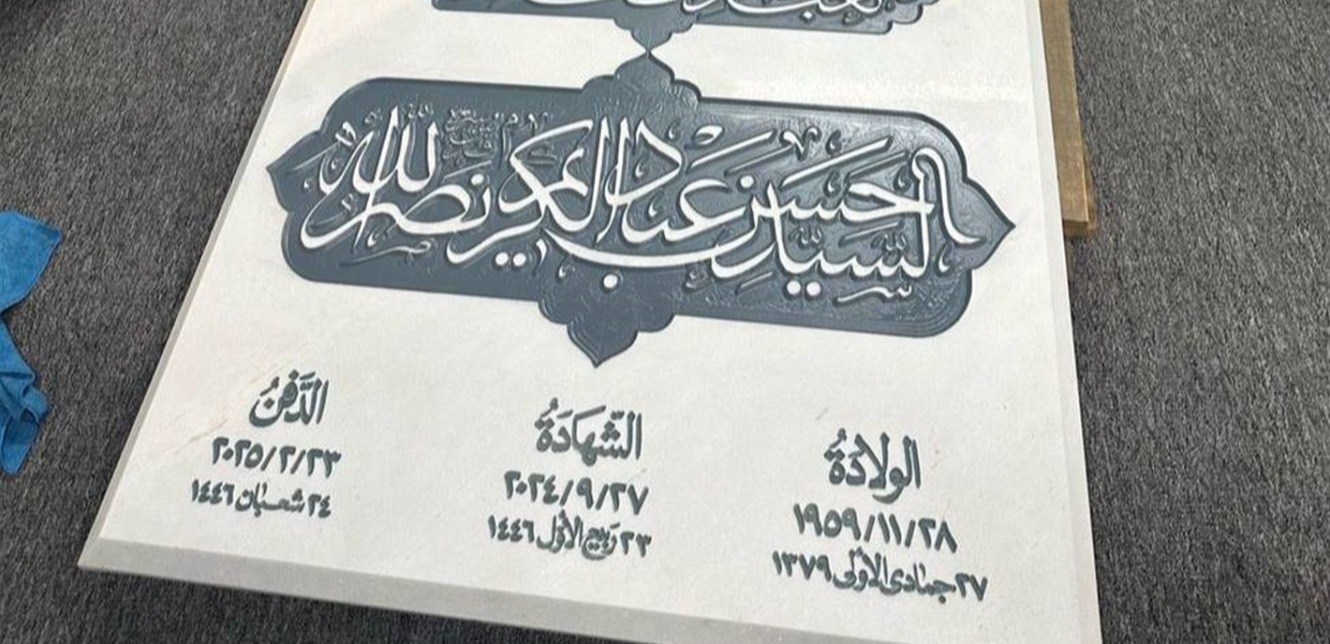 السيد حسن عبد الكريم نصر الله
الولادَةُ
١٩٥٩/١١/٢٨
٢٧ جمادى الأولى ١٣٧٩
الشَّهادَةُ
٢٠٢٤/٩/٢٧
٢٣ رَبيع الأوَّل ١٤٤٦
الدَّفنُ
٢٠٢٥/٢/٢٣
٢٤ شعبان ١٤٤٦